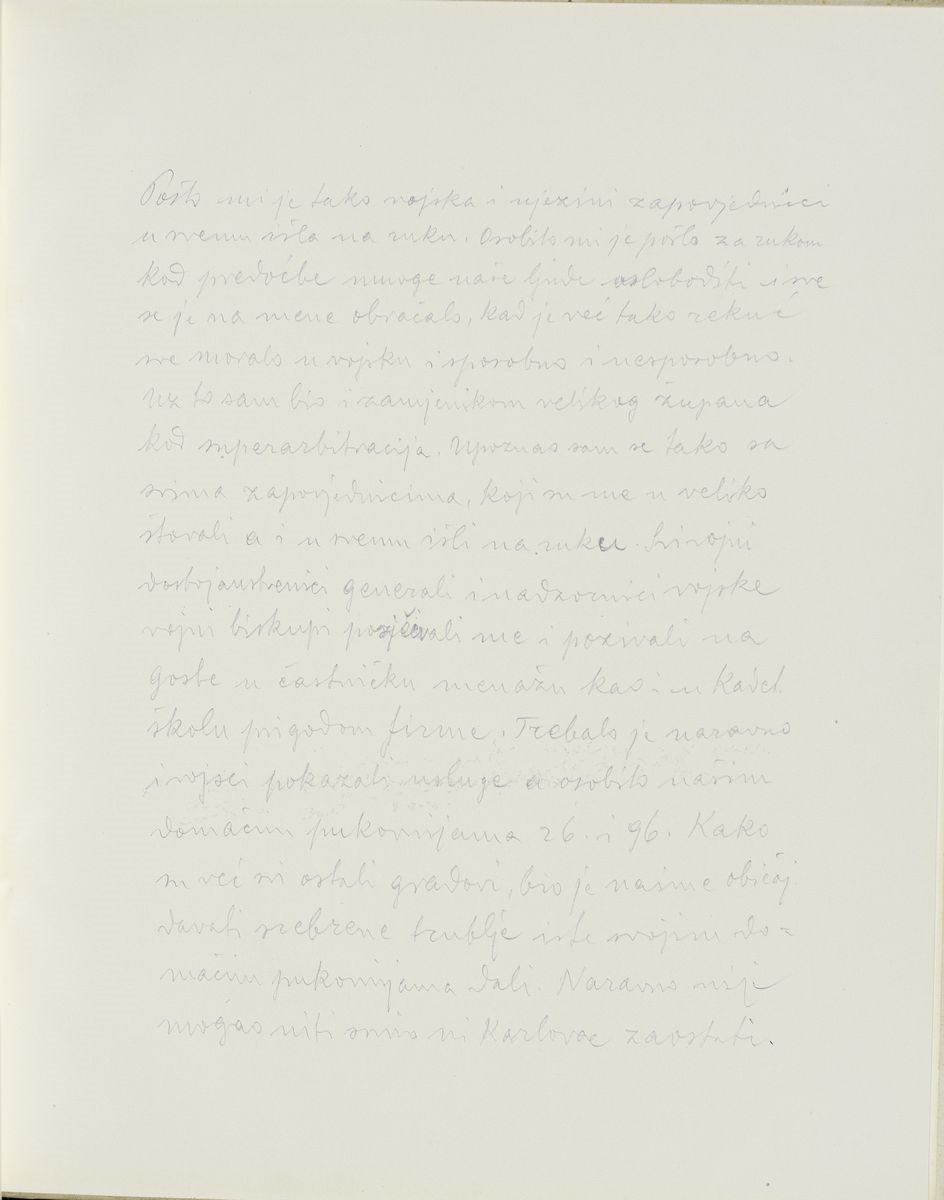 Pošto mi je tako vojska i njezini zapovjednici
u svemu išla na ruku. Osobito mi je pošlo za rukom
kod predočbe mnoge naše ljude osloboditi i sve
se je na mene obraćalo, kad je već tako rekuć
sve moralo u vojsku i sposobno i nesposobno.
Uz to sam bio i zamjenikom velikog župana
kod superarbitracija. Upoznao sam se tako sa
svima zapovjednicima, koji su me u veliko
štovali a i u svemu išli na ruku. Svi vojni
dostojanstvenici generali i nadzornici vojske
vojni biskupi posjećivali me i pozivali na
goste u častničku menažu kao i u Kadet.
školu prigodom firme. Trebalo je naravno
i vojsci pokazati usluge a osobito našim
domaćim pukovnijama 26. i 96. Kako
su već svi ostali gradovi, bio je naime običaj
davati srebrene trublje iste svojim do=
maćim pukovnijama dali. Naravno nije
mogao niti smio ni Karlovac zaostati.